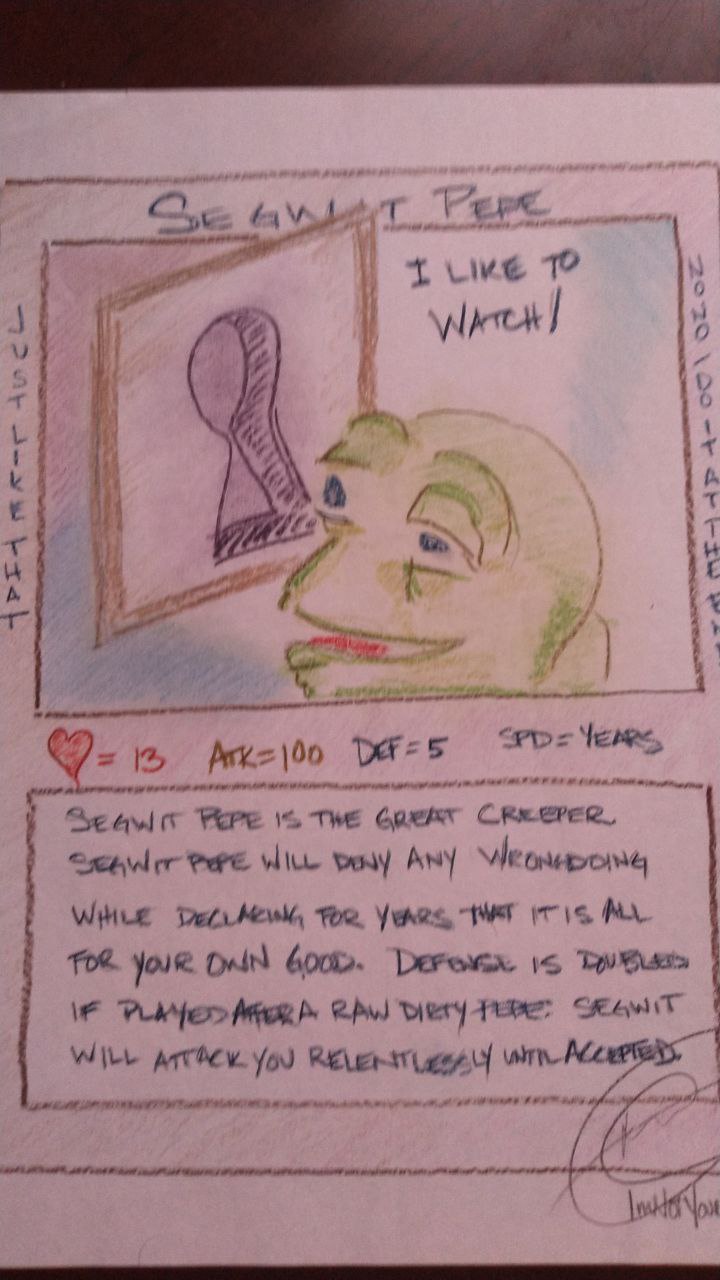 SEGWIT PEPE
I LIKE TO
WATCH!
JUST LIKE THAT
NONO \DO IT AT THE EN
= 13 ATK=100 DEF=5 SPD=YEARS
SEGWIT PEPE IS THE GREAT CREEPER.
SEGWIT PEPE WILL DENY ANY WRONGDOING
WHILE DECLARING FOR YEARS THAT IT IS ALL
FOR YOUR OWN GOOD. DEFENSE IS DOUBLED
IF PLAYED AFTER A RAW DIRTY PEPE. SEGWIT
WILL ATTACK YOU RELENTLESSLY UNTIL ACCEPTED.